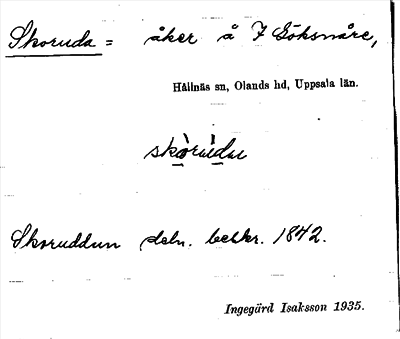 Skoruda = åker å 7 Göksnåre,
Hållnäs sn, Olands hd, Uppsala län.
skò̱rùdu
Skoruddun deln. beskr. 1842.
Ingegärd Isaksson 1935.